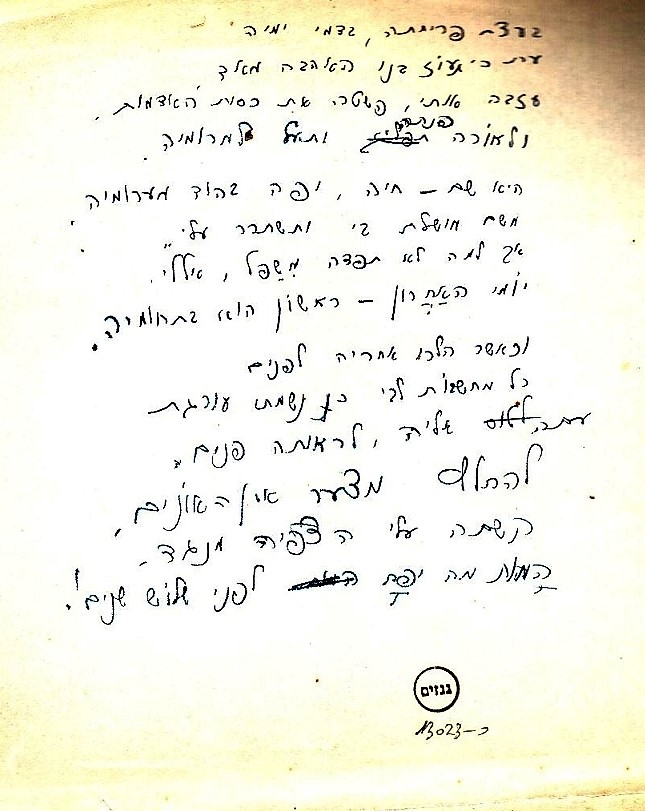 בעצם פריחתה, בדמי ימיה
עת כי יעוז בנו האהבה מאד
עזבה אותי, פשטה את כסות האדמות
פנתה
ולאורה ותעל למרומיה
היא שם – חיה, יפה בהוד מערומיה
משם מושלת בי ותשתרר עלי
אך למה לא תפדה משפל, אללי
יומי האחרון – ראשון הוא בתחומיה.
וכאשר הלכו אחריה לפנים
כל מחשבות לבי כן נשמתי עורגת
עתה, אליה, לראותה פנים
להחלץ מצער אין האונים,
קשתה עלי הצפיה מנגד
המות מה יפת לפני שלוש שנים!
גנזים
כ-13023